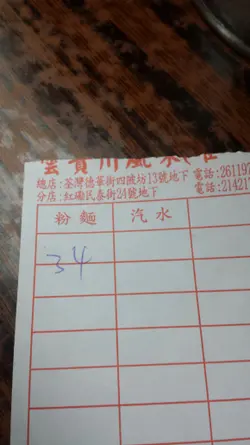 雲貴川風味
總店:荃灣德華街四陂坊13號地下 電話:26119
分店:紅磡民泰街24號地下 電話:21421
粉麵 汽水
34